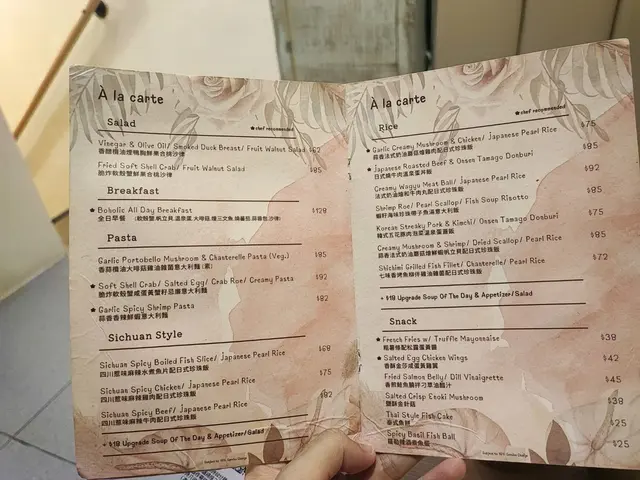 À la carte
★chef recommended
Salad
Vinegar & Olive Oil/ Smoked Duck Breast/ Fruit Walnut Salad $82
香醋橄油煙鴨胸鮮果合桃沙律
Fried Soft Shell Crab/ Fruit Walnut Salad $85
脆炸軟殼蟹鮮果合桃沙律
Breakfast
★ Boholic All Day Breakfast $128
全日早餐
Pasta
Garlic Portobello Mushroom & Chasterelle Pasta (Veg.) $85
Soft Shell Crab/ Salted Egg/ Crab Roe/ Creamy Pasta $92
★ Garlic Spicy Shrimp Pasta $82
蒜香香辣鮮蝦意大利麵
Sichuan Style
Sichuan Spicy Boiled Fish Slice/ Japanese Pearl Rice $68
四川惹味麻辣水煮魚片配日式珍珠飯
Sichuan Spicy Chicken/ Japanese Pearl Rice $75
四川惹味麻辣雞肉配日式珍珠飯
Sichuan Spicy Beef/ Japanese Pearl Rice $82
四川惹味麻辣牛肉配日式珍珠飯
+ $18 Upgrade Soup Of The Day & Appetizer/Salad
À la carte
★chef recommended
Rice
★ Garlic Creamy Mushroom & Chicken/ Japanese Pearl Rice $75
★ Japanese Roasted Beef & Onsen Tamago Donburi $85
日式燒牛肉溫泉蛋丼飯
Creamy Wagyu Meat Ball/ Japanese Pearl Rice $92
法式奶油和牛肉丸配日式珍珠飯
Shrimp Roe/ Pearl Scallop/ Fish Soup Risotto $85
Korean Streaky Pork & Kimchi/ Onsen Tamago Donburi $75
韓式五花腩肉泡菜溫泉蛋丼飯
Creamy Mushroom & Shrimp/ Dried Scallop/ Pearl Rice $85
Shichimi Grilled Fish Fillet/ Chasterelle/ Pearl Rice $72
+ $18 Upgrade Soup Of The Day & Appetizer/Salad
Snack
★ French Fries w/ Truffle Mayonnaise $38
粗薯條配松露蛋黃醬
★ Salted Egg Chicken Wings $42
香酥金莎鹹蛋黃雞翼
Fried Salmon Belly/ Dill Vinaigrette $45
香煎鮭魚腩拌刁草油醋汁
Salted Crisp Enoki Mushroom $38
椒鹽金針菇
Thai Style Fish Cake $25
泰式魚餅
Spicy Basil Fish Ball $25